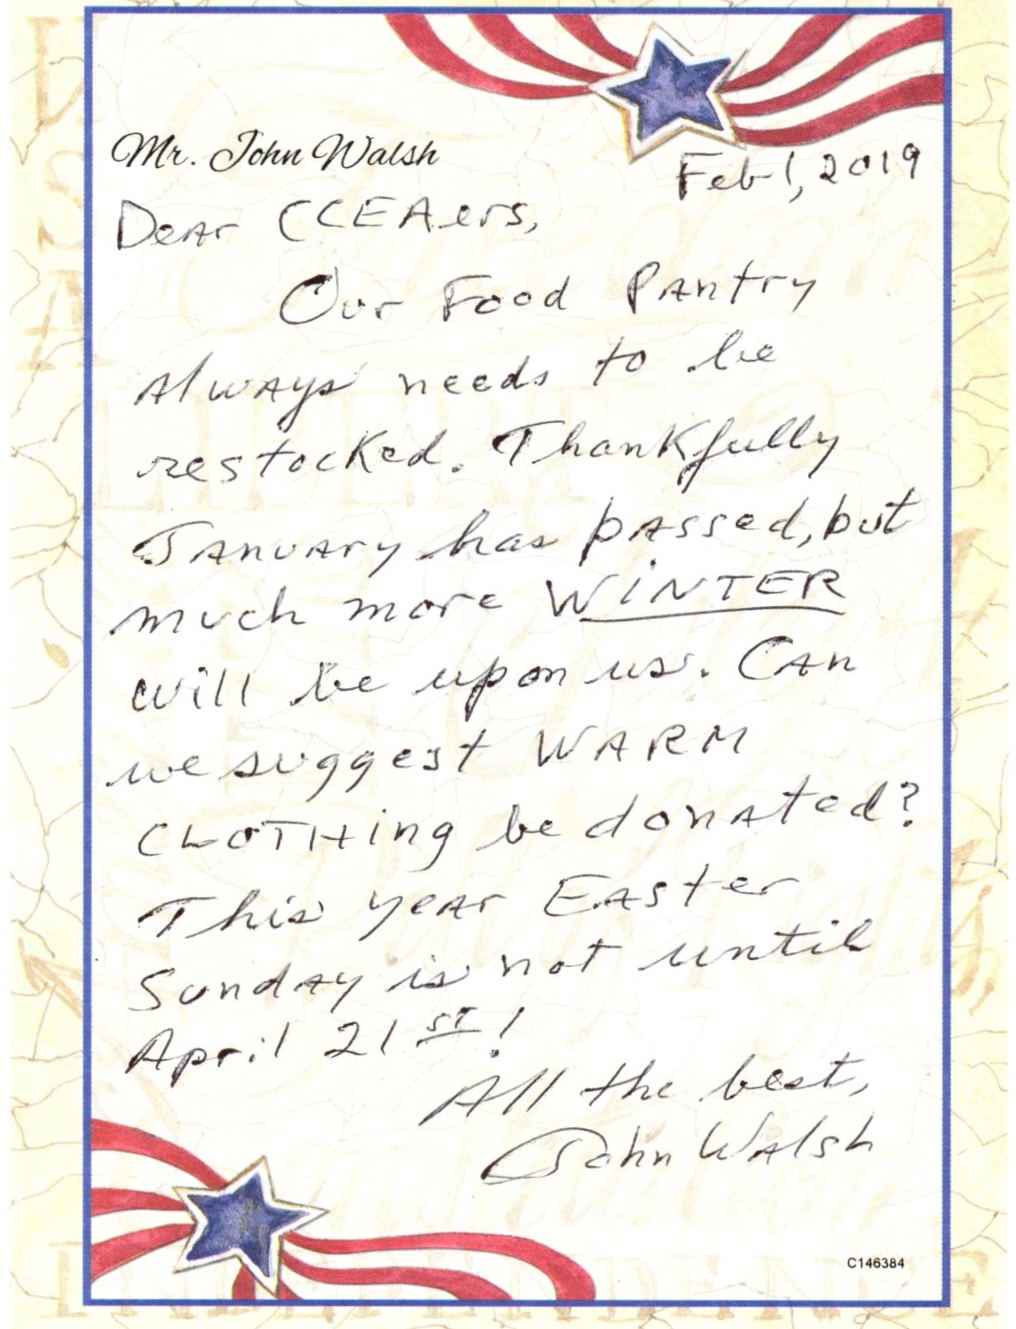 Mr. John Walsh
Feb 1, 2019
Dear CCEAers,
Our Food Pantry
Always needs to be
restocked. Thankfully
January has passed, but
much more WINTER
will be upon us. Can
we suggest WARM
CLOTHing be donated?
This year Easter
Sunday is not until
April 21st!
All the best,
John Walsh
C146384